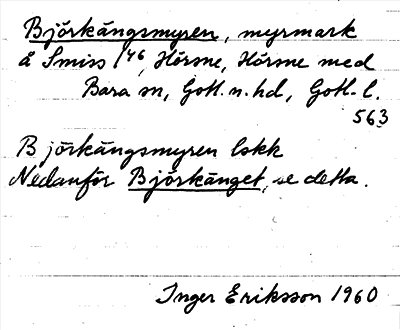 Björkängsmyren, myrmark
å Smiss 1/46, Hörsne, Hörsne med
Bara sn, Gotl. n. hd, Gotl. l.
563
Björkängsmyren lskk
Nedanför Björkänget, se detta.
Inger Eriksson 1960